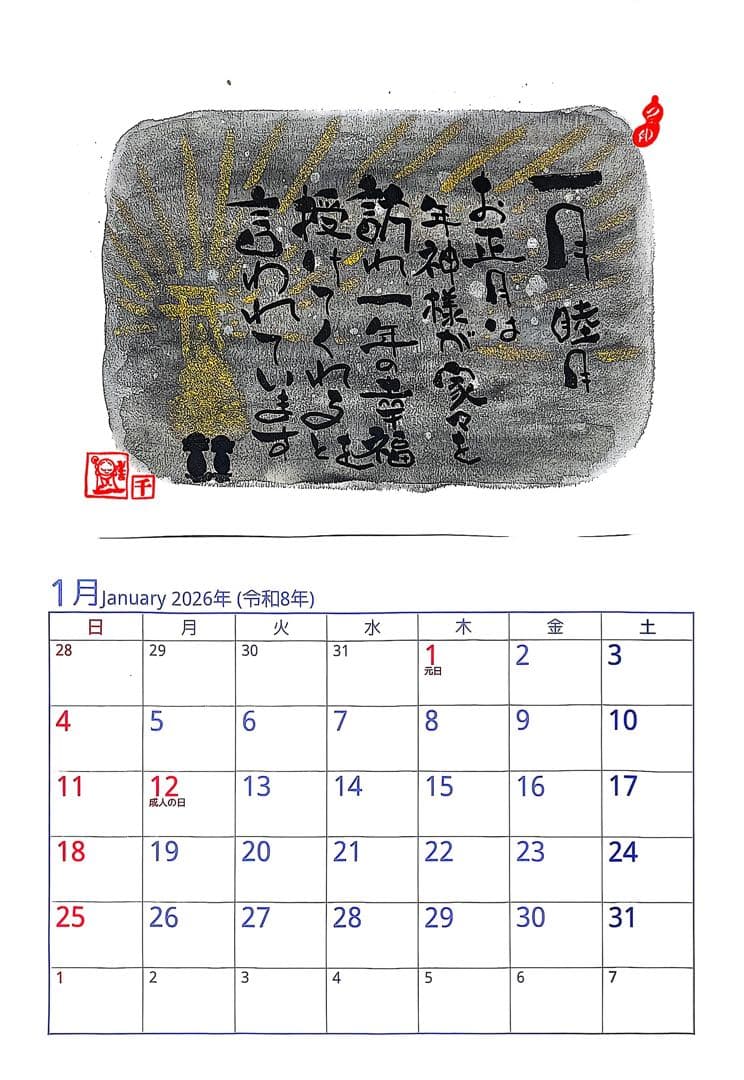 一月 睦月
お正月は
年神様が家々を
訪れ、一年の幸福を
授けてくれると
言われています
千
1月January 2026年 (令和8年)
日 月 火 水 木 金 土
28 29 30 31 1 2 3
元日
4 5 6 7 8 9 10
11 12 13 14 15 16 17
成人の日
18 19 20 21 22 23 24
25 26 27 28 29 30 31
1 2 3 4 5 6 7